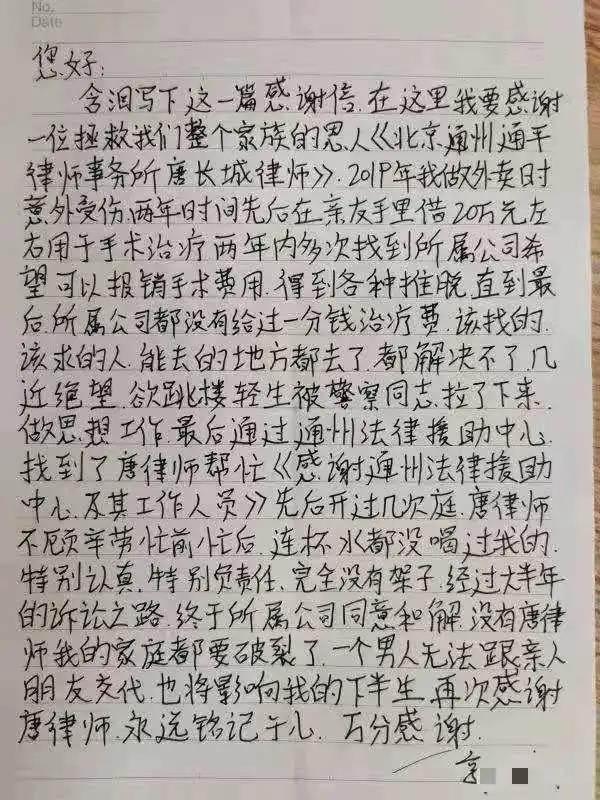 No.
Date
您好:
含泪写下这一篇感谢信.在这里我要感谢
一位拯救我们整个家族的恩人《北京通州通平
律师事务所唐长城律师》.2019年我做外卖时
意外受伤.两年时间先后在亲友手里借20万元左
右用于手术治疗两年内多次找到所属公司希
望可以报销手术费用.得到各种推脱.直到最
后.所属公司都没有给过一分钱治疗费.该找的.
该求的人.能去的地方都去了.都解决不了.几
近绝望.欲跳楼轻生被警察同志.拉了下来.
做思想工作.最后通过通州法律援助中心.
找到了唐律师帮忙《感谢通州法律援助
中心.及其工作人员》先后开过几次庭.唐律师
不顾辛劳忙前忙后.连杯水都没喝过我的.
特别认真.特别负责任.完全没有架子.经过大半年
的诉讼之路.终于所属公司同意和解.没有唐律
师我的家庭都要破裂了.一个男人无法跟亲人
朋友交代.也将影响我的下半生.再次感谢
唐律师.永远铭记于心.万分感谢.